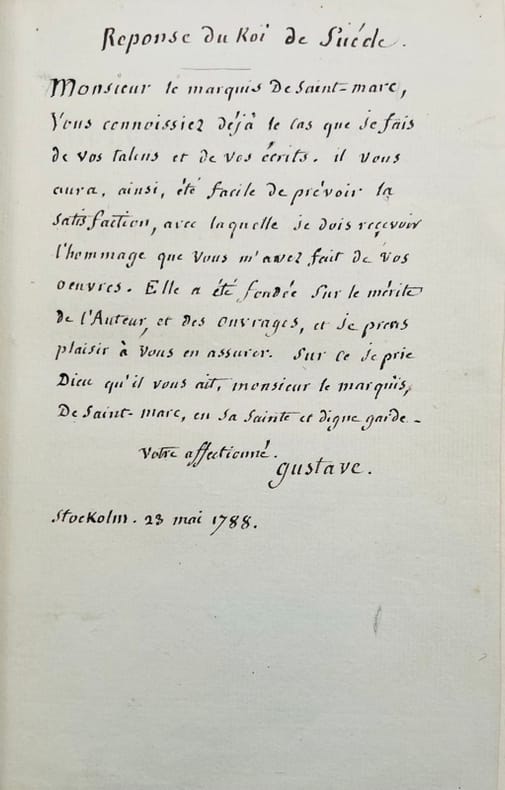 Reponse du Roi de Suéde.
Monsieur le marquis De Saint-marc,
Vous connoissiez déjà le cas que je fais
de vos talens et de vos écrits. il vous
aura, ainsi, été facile de prévoir la
satisfaction, avec laquelle je dois reçevoir
l'hommage que vous m'avez fait de vos
oeuvres. Elle a été fondée sur le mérite
de l'Auteur, et des ouvrages, et je prens
plaisir à vous en assurer. Sur ce je prie
Dieu qu'il vous ait, monsieur le marquis,
De Saint-marc, en sa sainte et digne garde-
votre affectionné.
gustave.
Stockolm. 23 mai 1788.